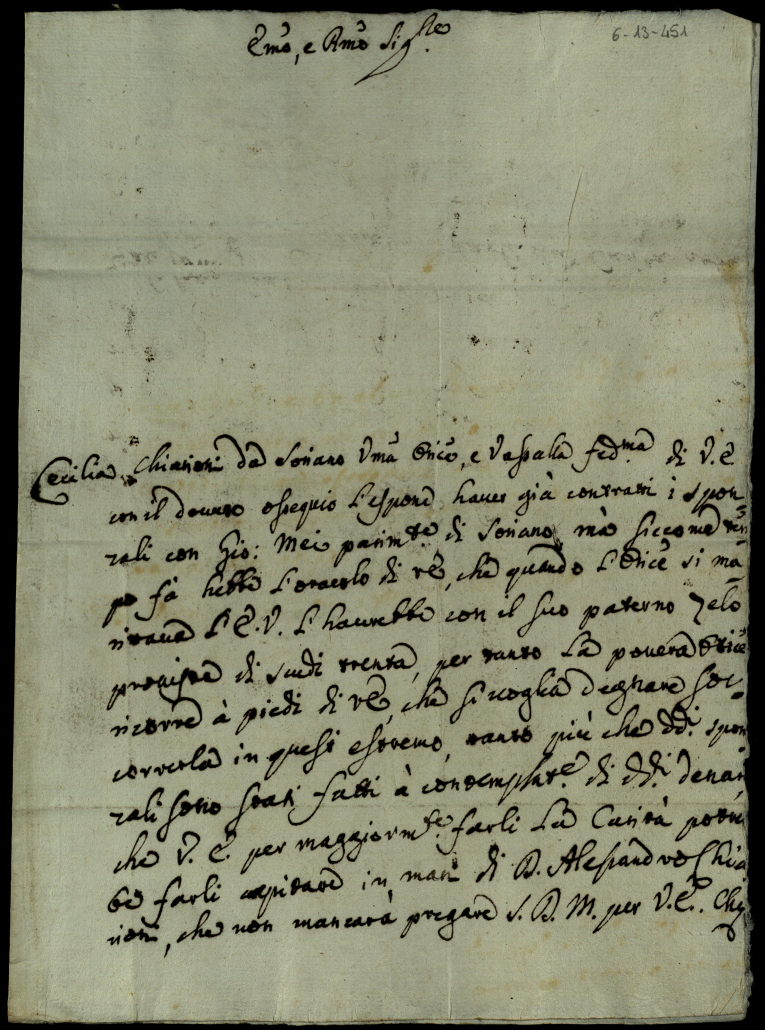 6-13-451
Em̃o, e Rm̃o Sig.re
Cecilia Chiarioni da Soriano Vmã Oricẽ, e Vassalla fed.ma di V.E
con il douuto ossequio L'espone hauer già contratti i spon
zali con Gio: Mei parim.te di Soriano, mà siccome tem
po fà hebbe l'oracolo di VE, che quando l'Oricẽ si ma
ritaua l'E.V. l'haurebbe con il suo paterno zelo
prouista di scudi trenta, per tanto La pouera Oricẽ
ricorre à piedi di VE, che si uoglia degnare soc
correrla in questo estremo, tanto più che dd.i spon
zali sono stati fatti à contemplat.e di dd.i denari
che V.E. per maggiorm.te farli La Carità potreb
be farli capitare in mani di D. Alessandro Chia
rioni, che non mancarà pregare S.D.M. per V.E. Che